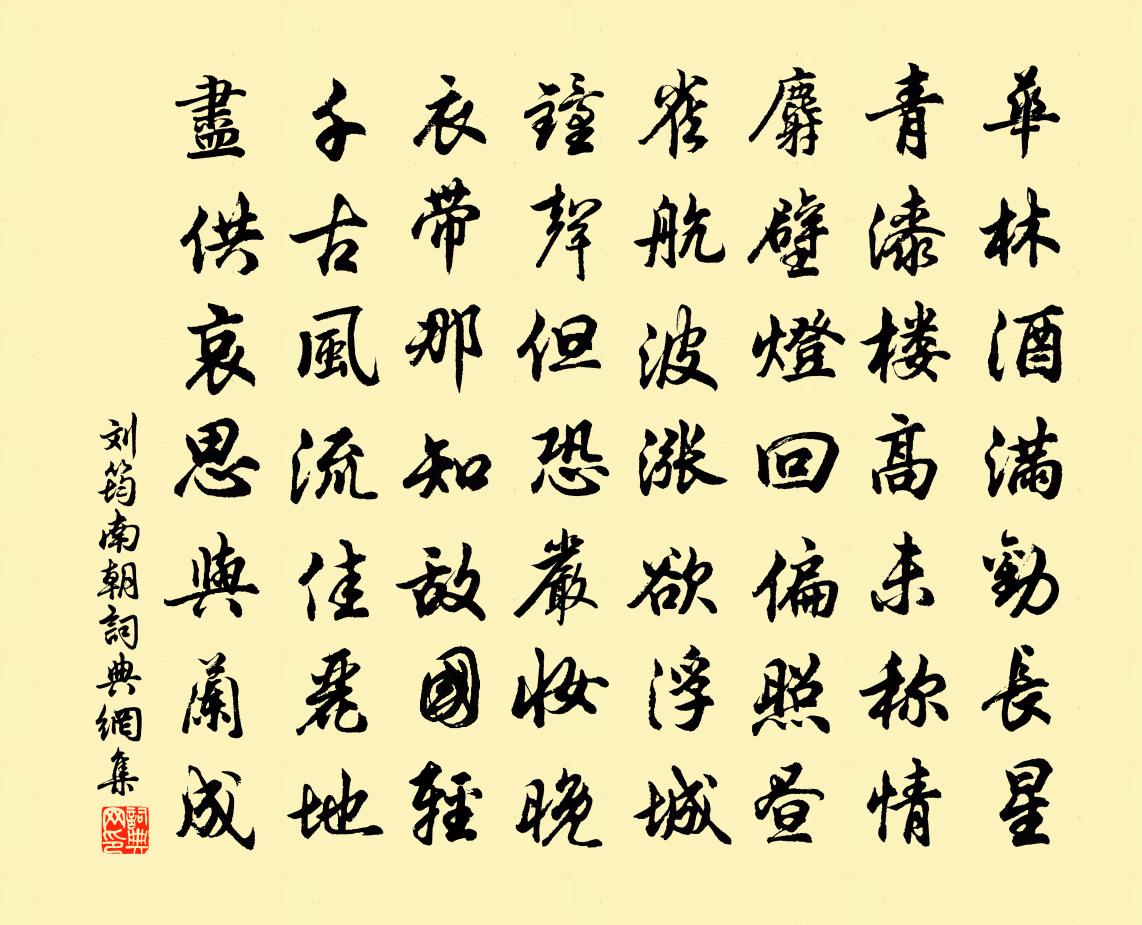 華林酒滿勸長星
青漆楼高未称情
麝壁燈回偏照昼
雀航波漲欲浮城
鐘聲但恐嚴妝晚
衣帶那知敵國輕
千古風流佳麗地
盡供哀思與蘭成
刘筠南朝詞典網集
詞典网印